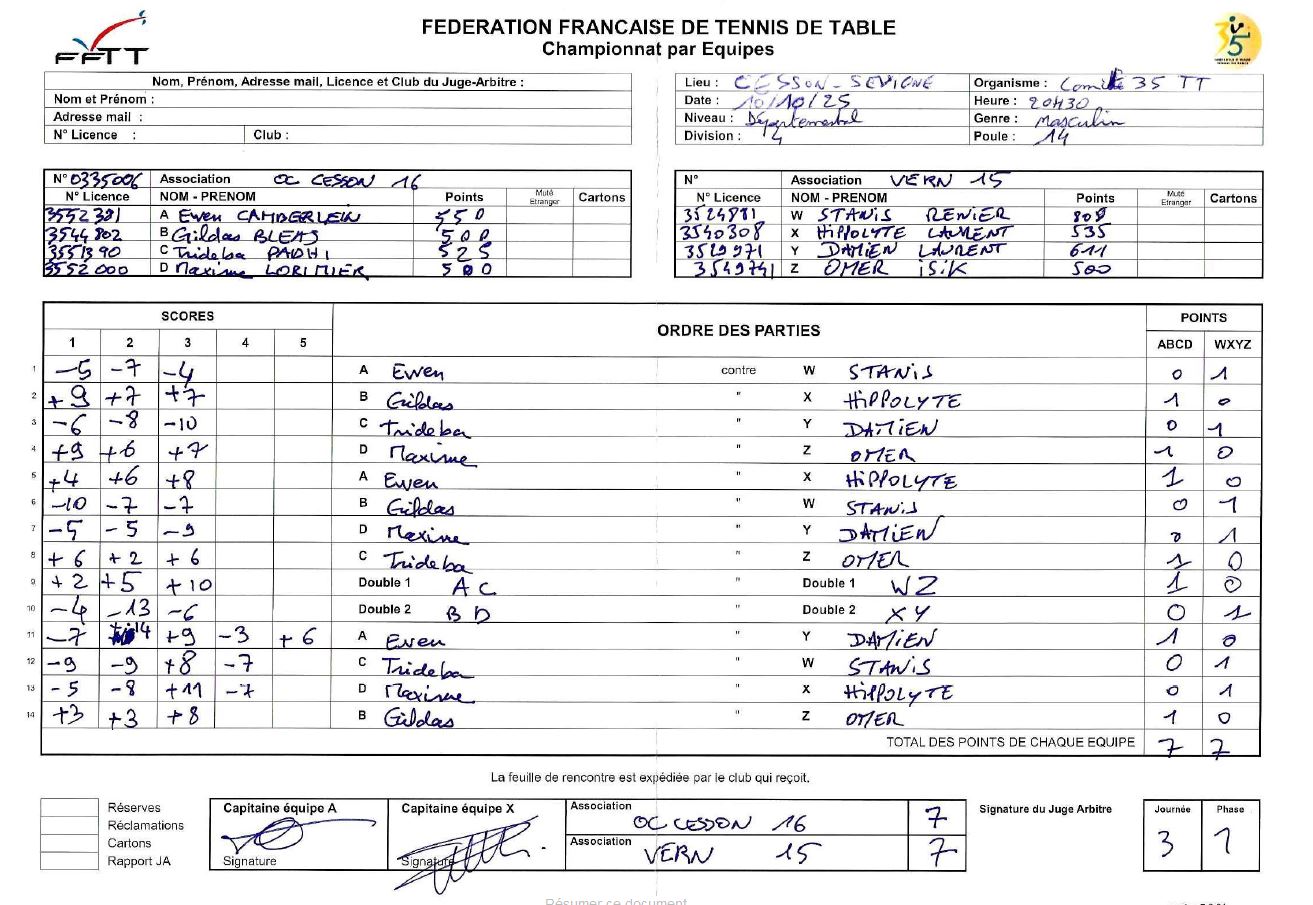 FFTT
FEDERATION FRANCAISE DE TENNIS DE TABLE
Championnat par Equipes
35
Nom, Prénom, Adresse mail, Licence et Club du Juge-Arbitre :
Nom et Prénom :
Adresse mail :
N° Licence : Club :
Lieu : CESSON-SEVIGNE Organisme : Comité 35 TT
Date : 10/10/25 Heure : 20H30
Niveau : Départemental Genre : Masculin
Division : 4 Poule : 14
N° 0335006 Association OC CESSON 16
N° Licence NOM - PRENOM Points Muté Etranger Cartons
3552381 A Ewen CAMBERLEIN 550
3544802 B Gildas BLEAS 500
3551390 C Trideba PADHI 525
3552000 D Maxime LORIMIER 500
N° Association VERN 15
N° Licence NOM - PRENOM Points Muté Etranger Cartons
3524881 W STANIS RENIER 808
3540308 X HIPPOLYTE LAURENT 535
3529971 Y DAMIEN LAURENT 611
3549741 Z OMER ISIK 500
SCORES ORDRE DES PARTIES POINTS
1 2 3 4 5 ABCD WXYZ
1 -5 -7 -4 A Ewen contre W STANIS 0 1
2 +9 +7 +7 B Gildas " X HIPPOLYTE 1 0
3 -6 -8 -10 C Trideba " Y DAMIEN 0 1
4 +9 +6 +7 D Maxime " Z OMER 1 0
5 +4 +6 +8 A Ewen " X HIPPOLYTE 1 0
6 -10 -7 -7 B Gildas " W STANIS 0 1
7 -5 -5 -9 D Maxime " Y DAMIEN 0 1
8 +6 +2 +6 C Trideba " Z OMER 1 0
9 +2 +5 +10 Double 1 AC " Double 1 WZ 1 0
10 -4 -13 -6 Double 2 BD " Double 2 XY 0 1
11 -7 +14 +9 -3 +6 A Ewen " Y DAMIEN 1 0
12 -9 -9 +8 -7 C Trideba " W STANIS 0 1
13 -5 -8 +11 -7 D Maxime " X HIPPOLYTE 0 1
14 +3 +3 +8 B Gildas " Z OMER 1 0
TOTAL DES POINTS DE CHAQUE EQUIPE 7 7
La feuille de rencontre est expédiée par le club qui reçoit.
Réserves
Réclamations
Cartons
Rapport JA
Capitaine équipe A
Signature
Capitaine équipe X
Signature
Association OC CESSON 16 7
Association VERN 15 7
Signature du Juge Arbitre
Journée Phase
3 1
Résumer ce document